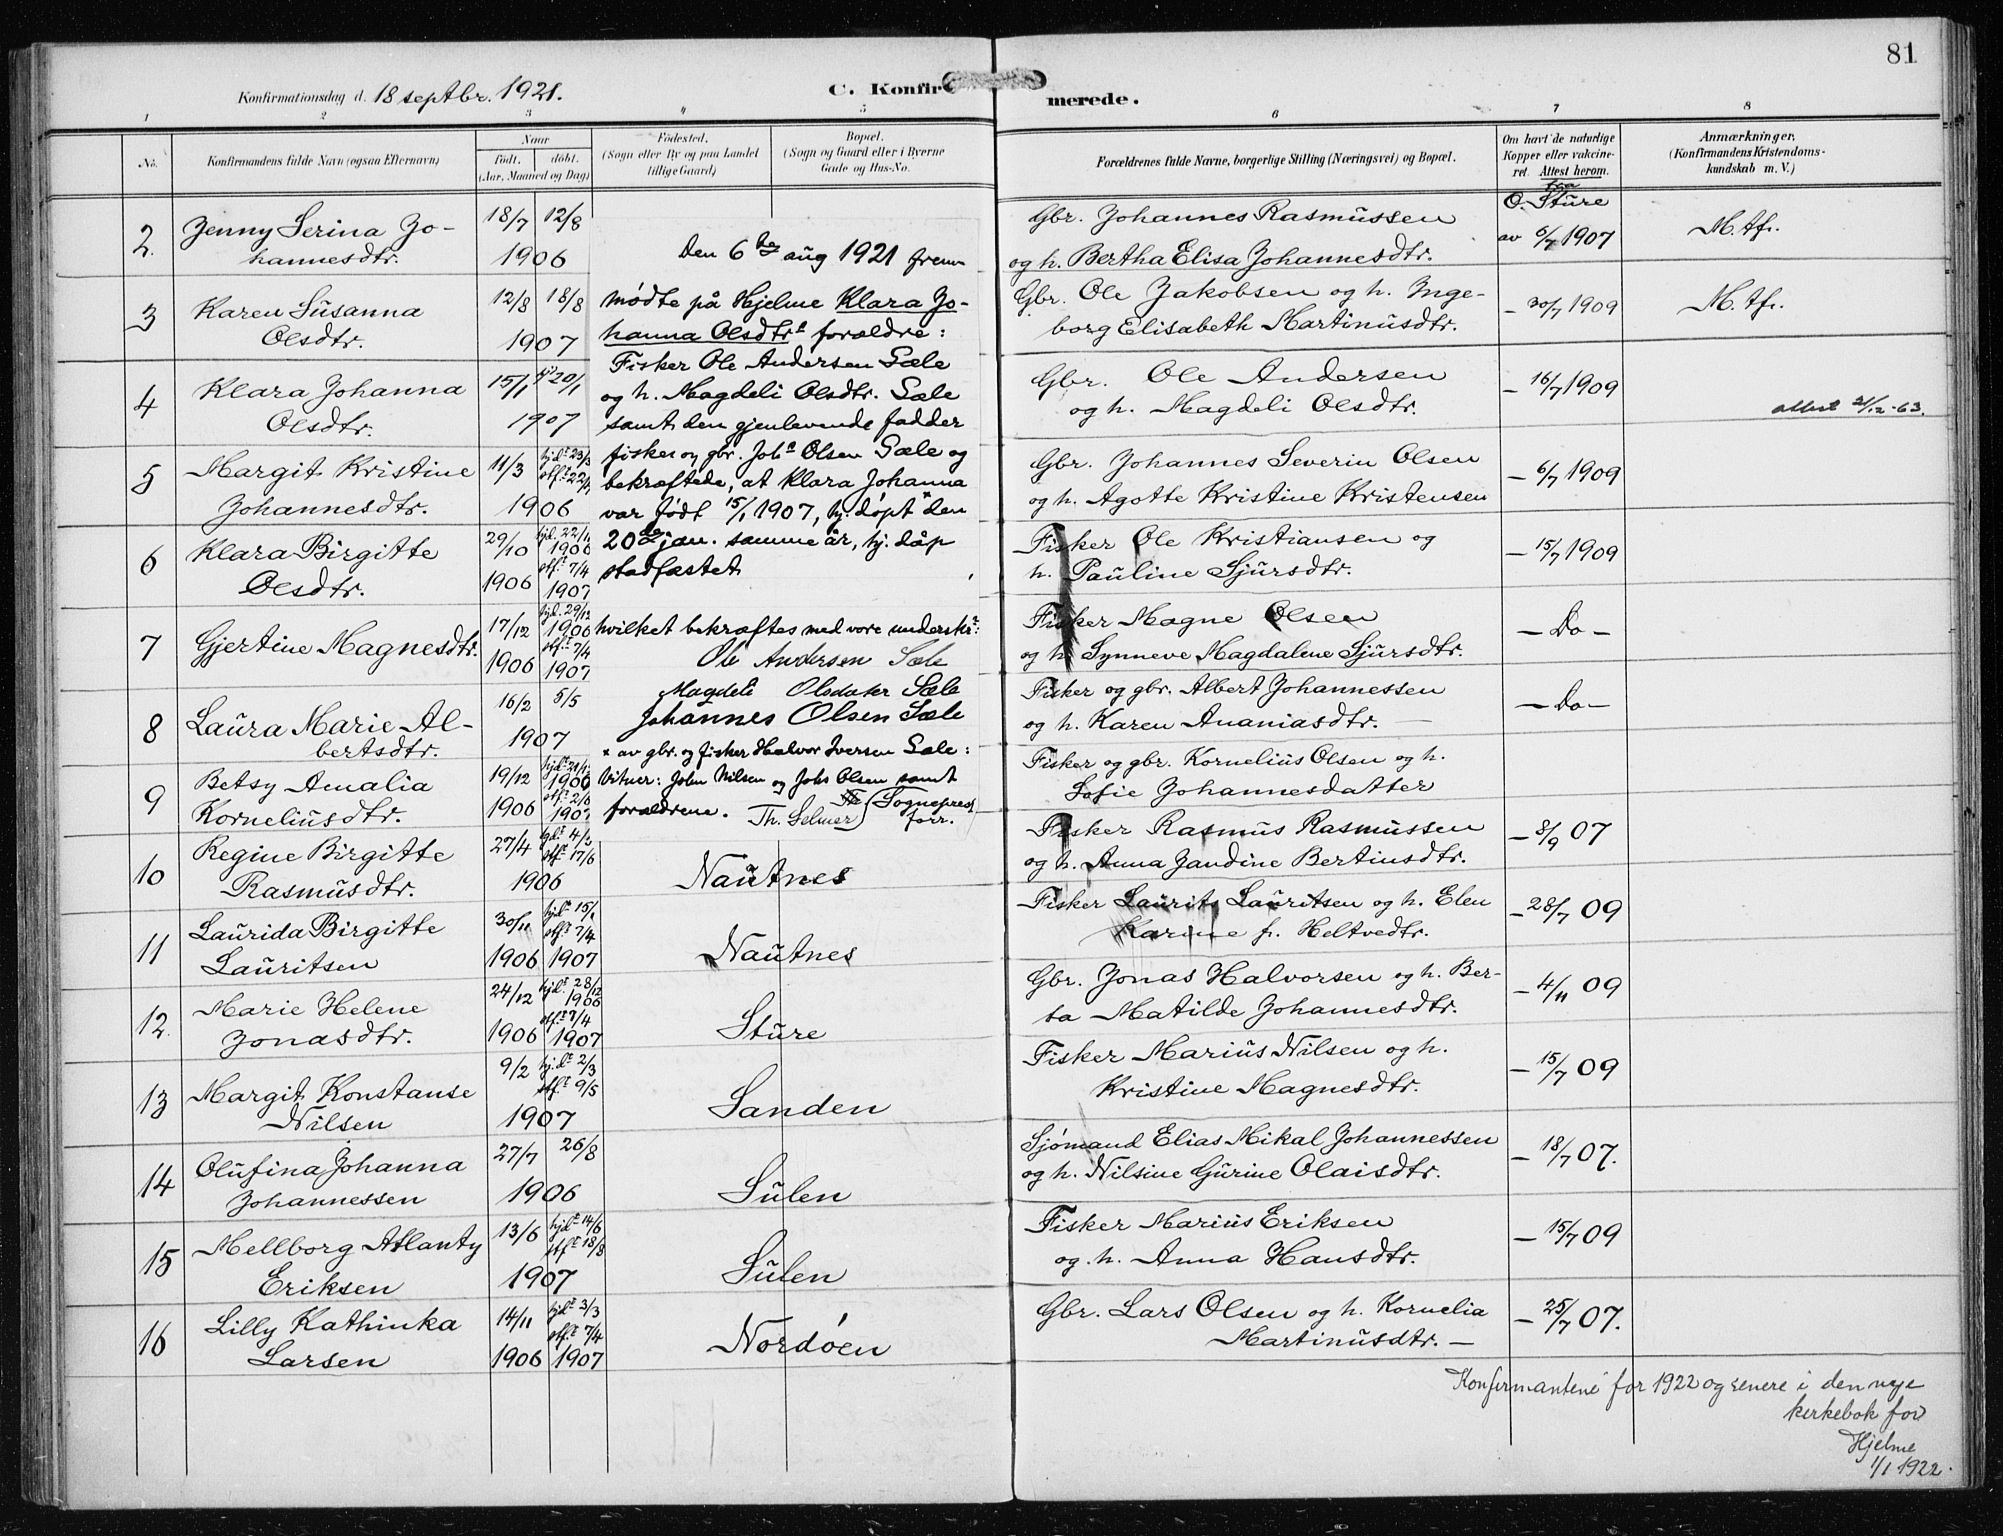 81
Konfirmationsdag d. 18 septbr. 1921.
C. Konfir
merede.
1 2 3 4 5 6 7 8
No.
Konfirmandens fulde Navn (ogsaa Efternavn)
Naar
født. døbt.
(Aar, Maaned og Dag)
Fødested.
(Sogn eller By og paa Landet
tillige Gaard)
Bopæl.
(Sogn og Gaard eller i Byerne
Gade og Hus-No.
Forældrenes fulde Navne, borgerlige Stilling (Næringsvei) og Bopæl.
Om havt de naturlige
Kopper eller vakcine-
ret. Attest herom.
Anmærkninger.
(Konfirmandens Kristendoms-
kundskab m. V.)
2. Jenny Serina Jo-
hannesdtr.
18/7 12/8
1906
Gbr. Johannes Rasmussen
og h. Bertha Elisa Johannesdtr.
O. Sture
av 6/7 1907
M. tfr.
3 Karen Susanna
Olsdtr.
12/8 18/8
1907
Gbr. Ole Jakobsen og h. Inge-
borg Elisabeth Martinusdtr.
— 30/7 1909
M. tfr.
4 Klara Johanna
Olsdtr.
15/1 20/1
1907
Gbr. Ole Andersen
og h. Magdeli Olsdtr.
— 16/7 1909
attest 21/12-63.
5 Margit Kristine
Johannesdtr.
11/3 hjdt 23/3
stf.t 22/4
1906
Gbr. Johannes Severin Olsen
og h. Agotte Kristine Kristensen
— 6/7 1909
6 Klara Birgitte
Olsdtr.
29/10 hjd. 22/11
1906
stf.t 7/4
1906 1907
Fisker Ole Kristiansen og
h. Pauline Sjursdtr.
— 15/7 1909
7 Gjertine Magnesdtr.
17/12 hjd. 29/12
1906
stf.t 7/4
1906 1907
Fisker Magne Olsen
og h. Synneve Magdalene Sjursdtr.
— Do —
8 Laura Marie Al-
bertsdtr.
16/2 5/5
1907
Fisker og gbr. Albert Johannessen
og h. Karen Ananiasdtr. —
— Do —
9 Betsy Amalia
Korneliusdtr.
19/12
1906
stf.t 2/6
1906 1907
Fisker og gbr. Kornelius Olsen og h.
Sofie Johannesdatter
Den 6te aug 1921 frem
mødte på Hjelme Klara Jo-
hanna Olsdtrs forældre:
Fisker Ole Andersen Sæle
og h. Magdeli Olsdtr. Sæle
samt den gjenlevende fadder
fisker og gbr. Johs Olsen Sæle og
bekræftede, at Klara Johanna
var født 15/1 1907, hj. døpt x den
20de jan. samme år, hj. dåp
stadfæstet
hvilket bekræftes med vore underskr:
Ole Andersen Sæle
Magdeli Olsdater Sæle
Johannes Olsen Sæle
x av gbr. og fisker Halvor Iversen Sæle:
Vitner: John Nilsen og Johs Olsen samt
forældrene. Th. Selmer Sogneprest
forr.
10 Regine Birgitte
Rasmusdtr.
27/4
stf.t 17/6
1906
Nautnes
Fisker Rasmus Rasmussen
og h. Anna Jandine Bertinusdtr.
— 8/9 07
11 Laurida Birgitte
Lauritsen
30/11 hjdt 15/1
stf.t 7/4
1906 1907
Nautnes
Fisker Laurits Lauritsen og h. Elen
Karine f. Heltvedtr.
— 28/7 09
12. Marie Helene
Jonasdtr.
24/12 hjdt 28/12
1906
stf.t 7/4
1906 1907
Sture
Gbr. Jonas Halvorsen og h. Ber-
ta Matilde Johannesdtr.
— 4/11 09
13 Margit Konstanse
Nilsen
9/2 hj.dt 2/3
stf.t 9/5
1907
Sanden
Fisker Marius Nilsen og h.
Kristine Magnesdtr.
— 15/7 09
14 Olufina Johanna
Johannessen
27/7 26/8
1906
Sulen
Sjømand Elias Mikal Johannessen
og h. Nilsine Gurine Olaisdtr.
— 18/7 07.
15 Mellborg Atlanty
Eriksen
13/6 hjdt 14/6
stf.t 18/8
1907
Sulen
Fisker Marius Eriksen
og h. Anna Hansdtr.
— 15/7 09
16 Lilly Kathinka
Larsen
14/11 hjdt 3/3
stf.t 7/4
1906 1907
Nordøen
Gbr. Lars Olsen og h. Kornelia
Martinusdtr. —
— 25/7 07.
Konfirmantene for 1922 og senere i den nye
kerkebok for
Hjelme
1/1 1922.